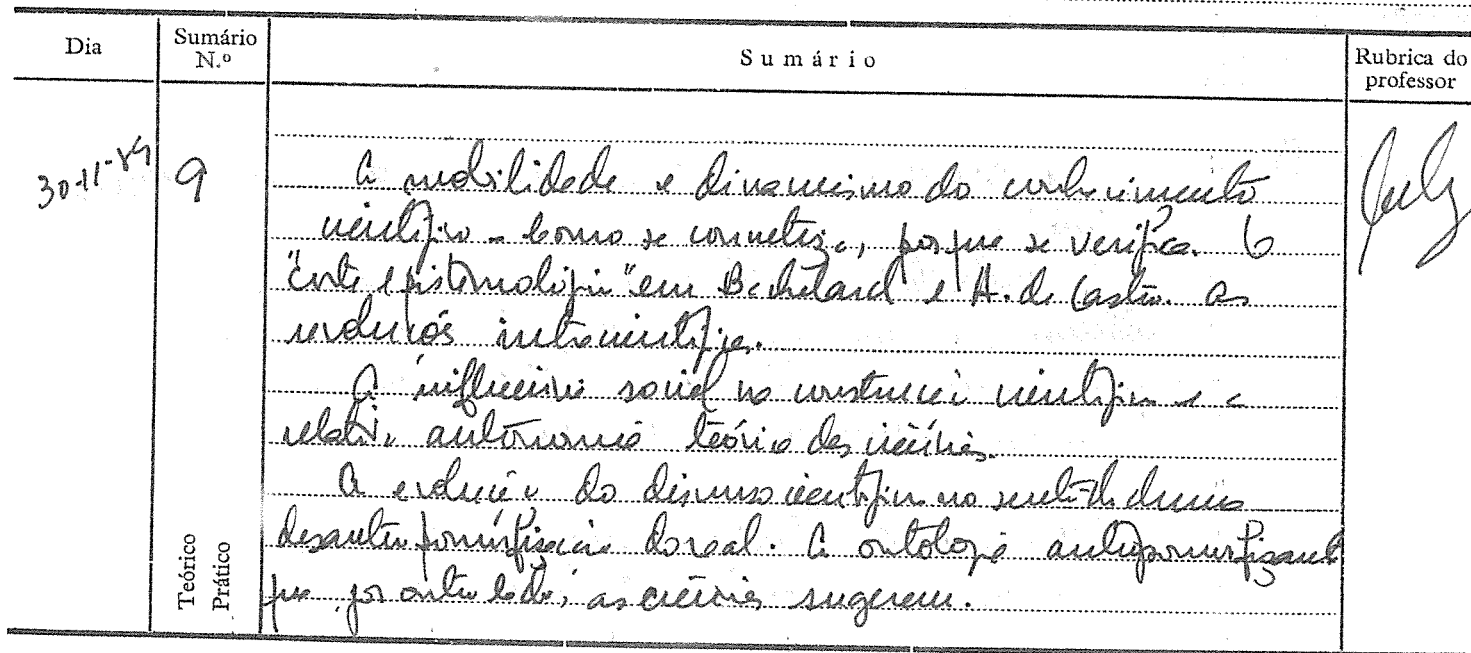 Dia
Sumário N.º
Sumário
Rubrica do professor
30-11-
9
A mobilidade e dinamismo do conhecimento
científico - Como se concretiza, porque se verifica. O
"corte epistemológico" em Bachelard e A. de Castro. As
revoluções intracientíficas.
A influência social na construção científica e a
relativa autonomia teórica das ciências.
A evolução do discurso científico no sentido duma
desantropomorfização do real. A ontologia antropomorfizante
que, por outro lado, as ciências sugerem.
Teórico
Prático